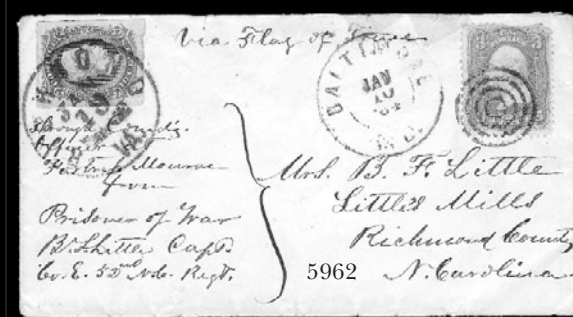 Via Flag of Truce
BALTIMORE
JAN
10
'64
MD.
through Comdg.
Officer
Fortress Monroe
from
Prisoner of War
B. F. Little Capt.
Co. E. 52nd N.C. Regt.
Mrs. B. F. Little
Little's Mills
Richmond County
N. Carolina
5962